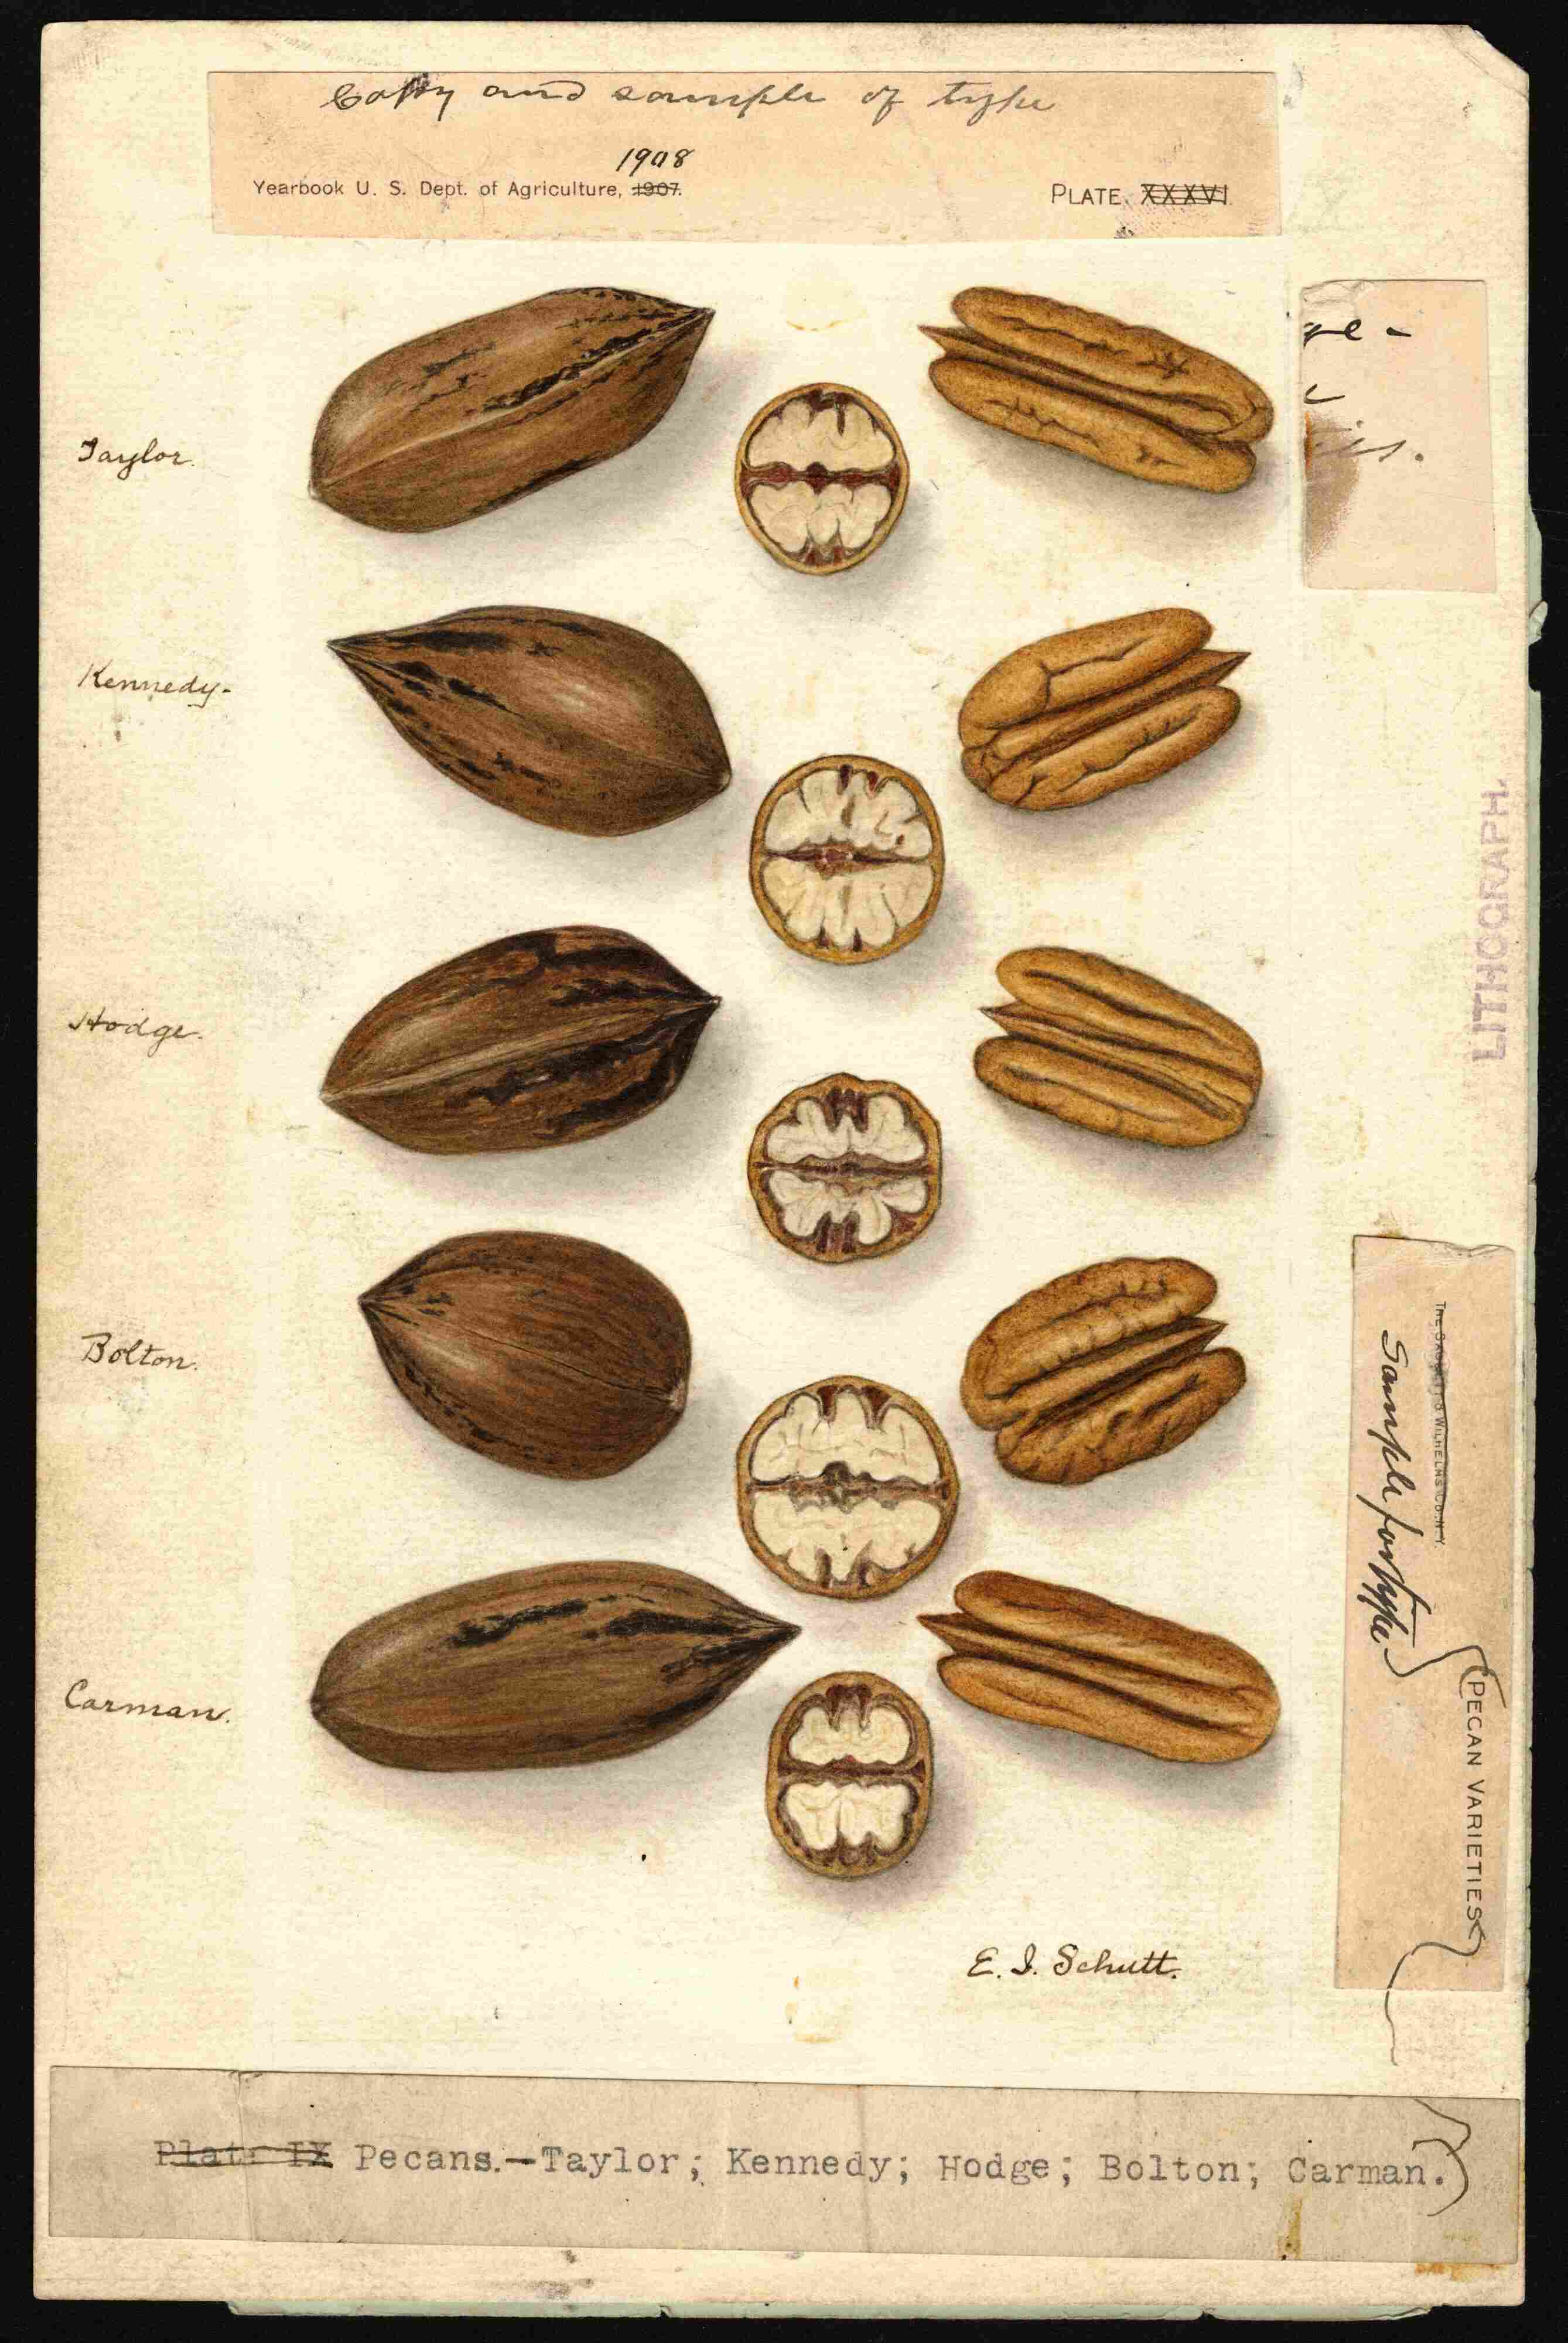 Copy and sample of type
1908
Yearbook U. S. Dept. of Agriculture, 1907.
PLATE XXXVI
Taylor.
Kennedy.
LITHOGRAPH.
Hodge.
Bolton.
THE SACKETT & WILHELMS CO. N.Y.
Sample for type
PECAN VARIETIES
Carman.
E. I. Schutt.
Plate IX Pecans.—Taylor; Kennedy; Hodge; Bolton; Carman.